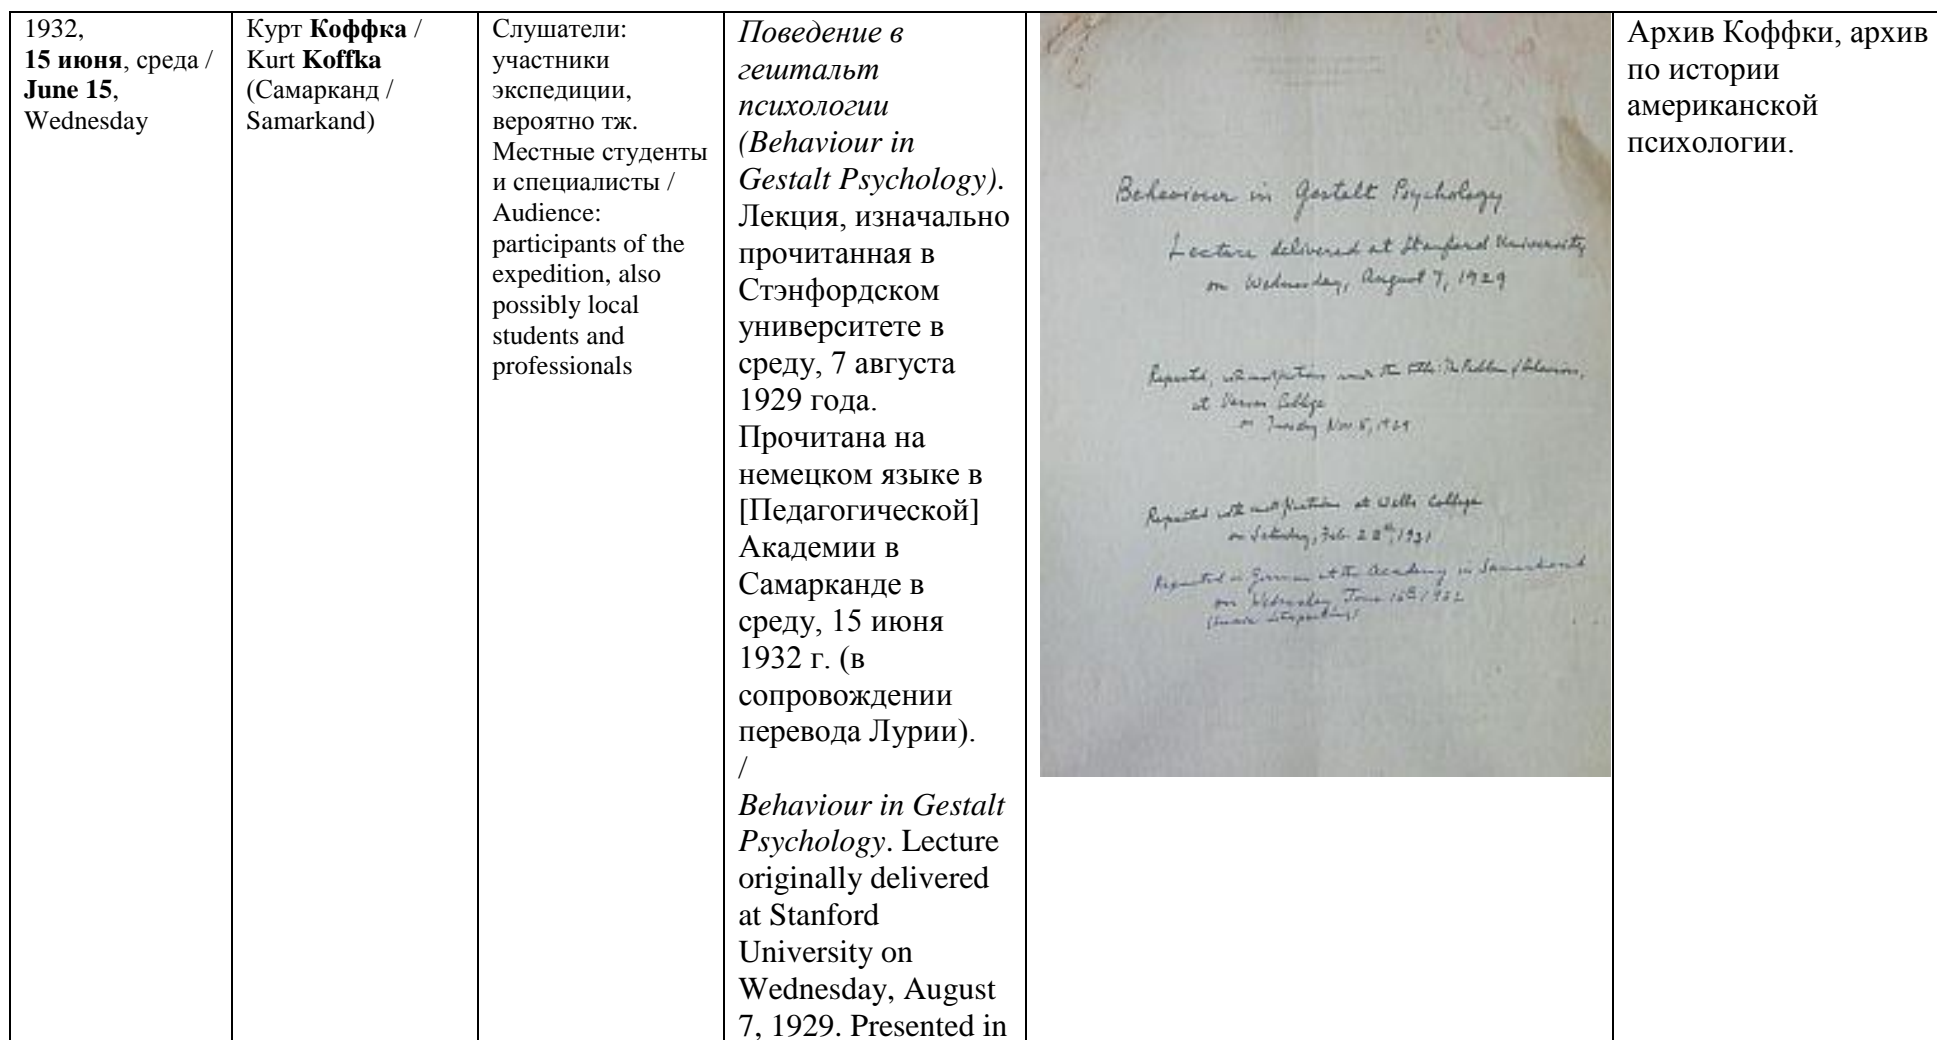 1932,
15 июня, среда /
June 15,
Wednesday
Курт Коффка /
Kurt Koffka
(Самарканд /
Samarkand)
Слушатели:
участники
экспедиции,
вероятно тж.
Местные студенты
и специалисты /
Audience:
participants of the
expedition, also
possibly local
students and
professionals
Поведение в
гештальт
психологии
(Behaviour in
Gestalt Psychology).
Лекция, изначально
прочитанная в
Стэнфордском
университете в
среду, 7 августа
1929 года.
Прочитана на
немецком языке в
[Педагогической]
Академии в
Самарканде в
среду, 15 июня
1932 г. (в
сопровождении
перевода Лурии).
/
Behaviour in Gestalt
Psychology. Lecture
originally delivered
at Stanford
University on
Wednesday, August
7, 1929. Presented in
Behaviour in Gestalt Psychology
Lecture delivered at Stanford University
on Wednesday, August 7, 1929
Repeated, with modifications under the title: The Problem of Behaviour,
at Vassar College
on Tuesday Nov. 5, 1929
Repeated with modifications at Wells College
on Saturday, Feb. 28th, 1931
Repeated in German at the Academy in Samarkand
on Wednesday June 15th 1932
(Luria interpreting)
Архив Коффки, архив
по истории
американской
психологии.